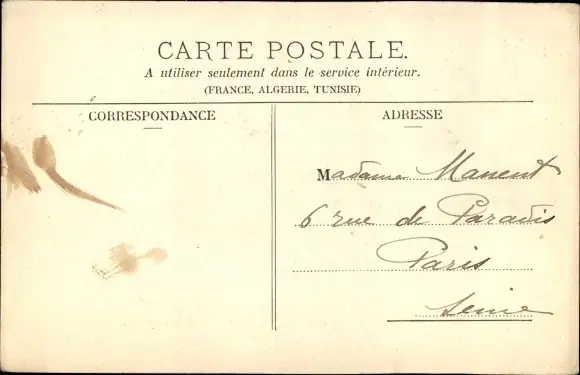 CARTE POSTALE.
A utiliser seulement dans le service intérieur.
(FRANCE, ALGERIE, TUNISIE)
CORRESPONDANCE
ADRESSE
Madame Manent
6 rue de Paradis
Paris
Seine